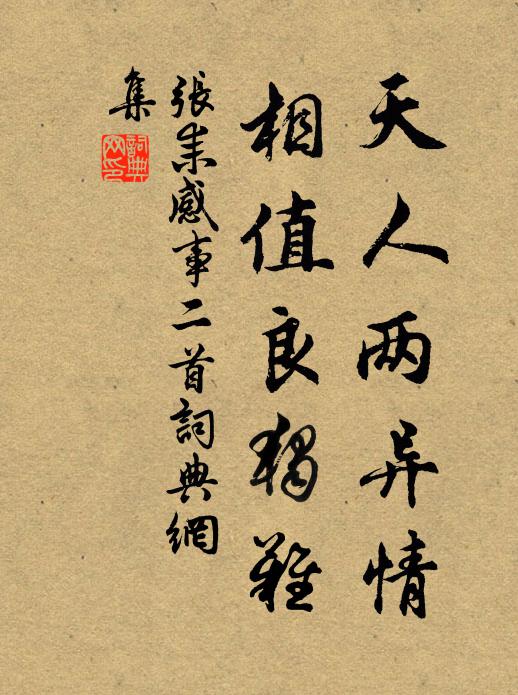 天人两异情
相值良独难
張耒感事二首詞典網
集
詞典
网印